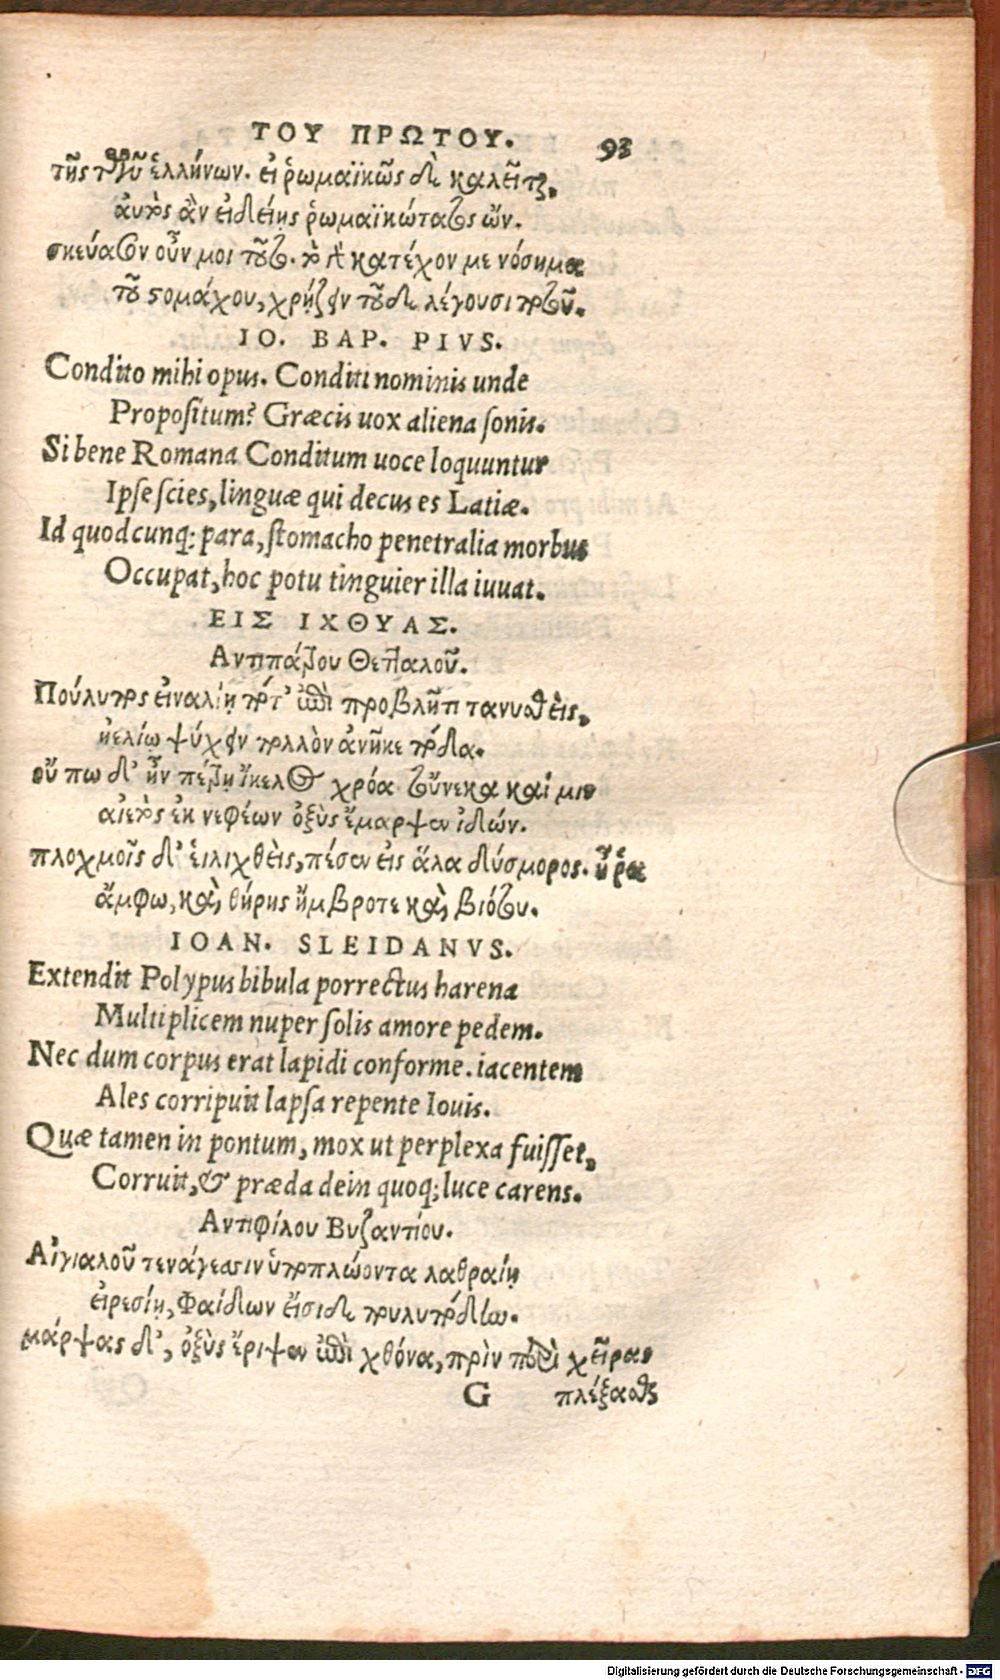 ΤΟΥ ΠΡΩΤΟΥ. 93
τῆς τῶν ἑλλήνων. εἰ ῥωμαϊκῶς δὲ καλεῖται,
αὐτὸς ἂν εἰδείης ῥωμαϊκώτατος ὤν.
σκεύασον οὖν μοι τοῦτο. τὸ γὰρ κατέχον με νόσημα
τοῦ στομάχου, χρῄζειν τοῦδε λέγουσι ποτοῦ.
IO. BAP. PIVS.
Condito mihi opus. Conditi nominis unde
Propositum? Græcis uox aliena sonis.
Si bene Romana Conditum uoce loquuntur
Ipse scies, linguæ qui decus es Latiæ.
Id quodcunq; para, stomacho penetralia morbus
Occupat, hoc potu tinguier illa iuuat.
ΕΙΣ ΙΧΘΥΑΣ.
Αντιπάτρου Θετταλοῦ.
Πούλυπος εἰναλίῃ ποτ' ἐπὶ προβλῆτι τανυσθεὶς,
ἠελίῳ ψύχειν πολλὸν ἀνῆκε πόδα.
οὔ πω δ' ἦν πέτρῃ ἴκελος χρόα τοὔνεκα καί μιν
αἰετὸς ἐκ νεφέων ὀξὺς ἔμαρψεν ἰδών.
πλοχμοῖς δ' εἱλιχθεὶς, πέσεν εἰς ἅλα δύσμορος. ἦ ῥα
ἄμφω, καὶ θήρης ἤμβροτε καὶ βιότου.
IOAN. SLEIDANVS.
Extendit Polypus bibula porrectus harena
Multiplicem nuper solis amore pedem.
Nec dum corpus erat lapidi conforme. iacentem
Ales corripuit lapsa repente Iouis.
Quæ tamen in pontum, mox ut perplexa fuisset,
Corruit, & præda dein quoq; luce carens.
Αντιφίλου Βυζαντίου.
Αἰγιαλοῦ τενάγεσσιν ὑποπλώοντα λαθραίῃ
εἰρεσίῃ, Φαίδων εἴσιδε πουλυπόδην.
μάρψας δ', ὀξὺς ἔριψεν ἐπὶ χθόνα, πρὶν περὶ χεῖρας
G πλέξασθαι